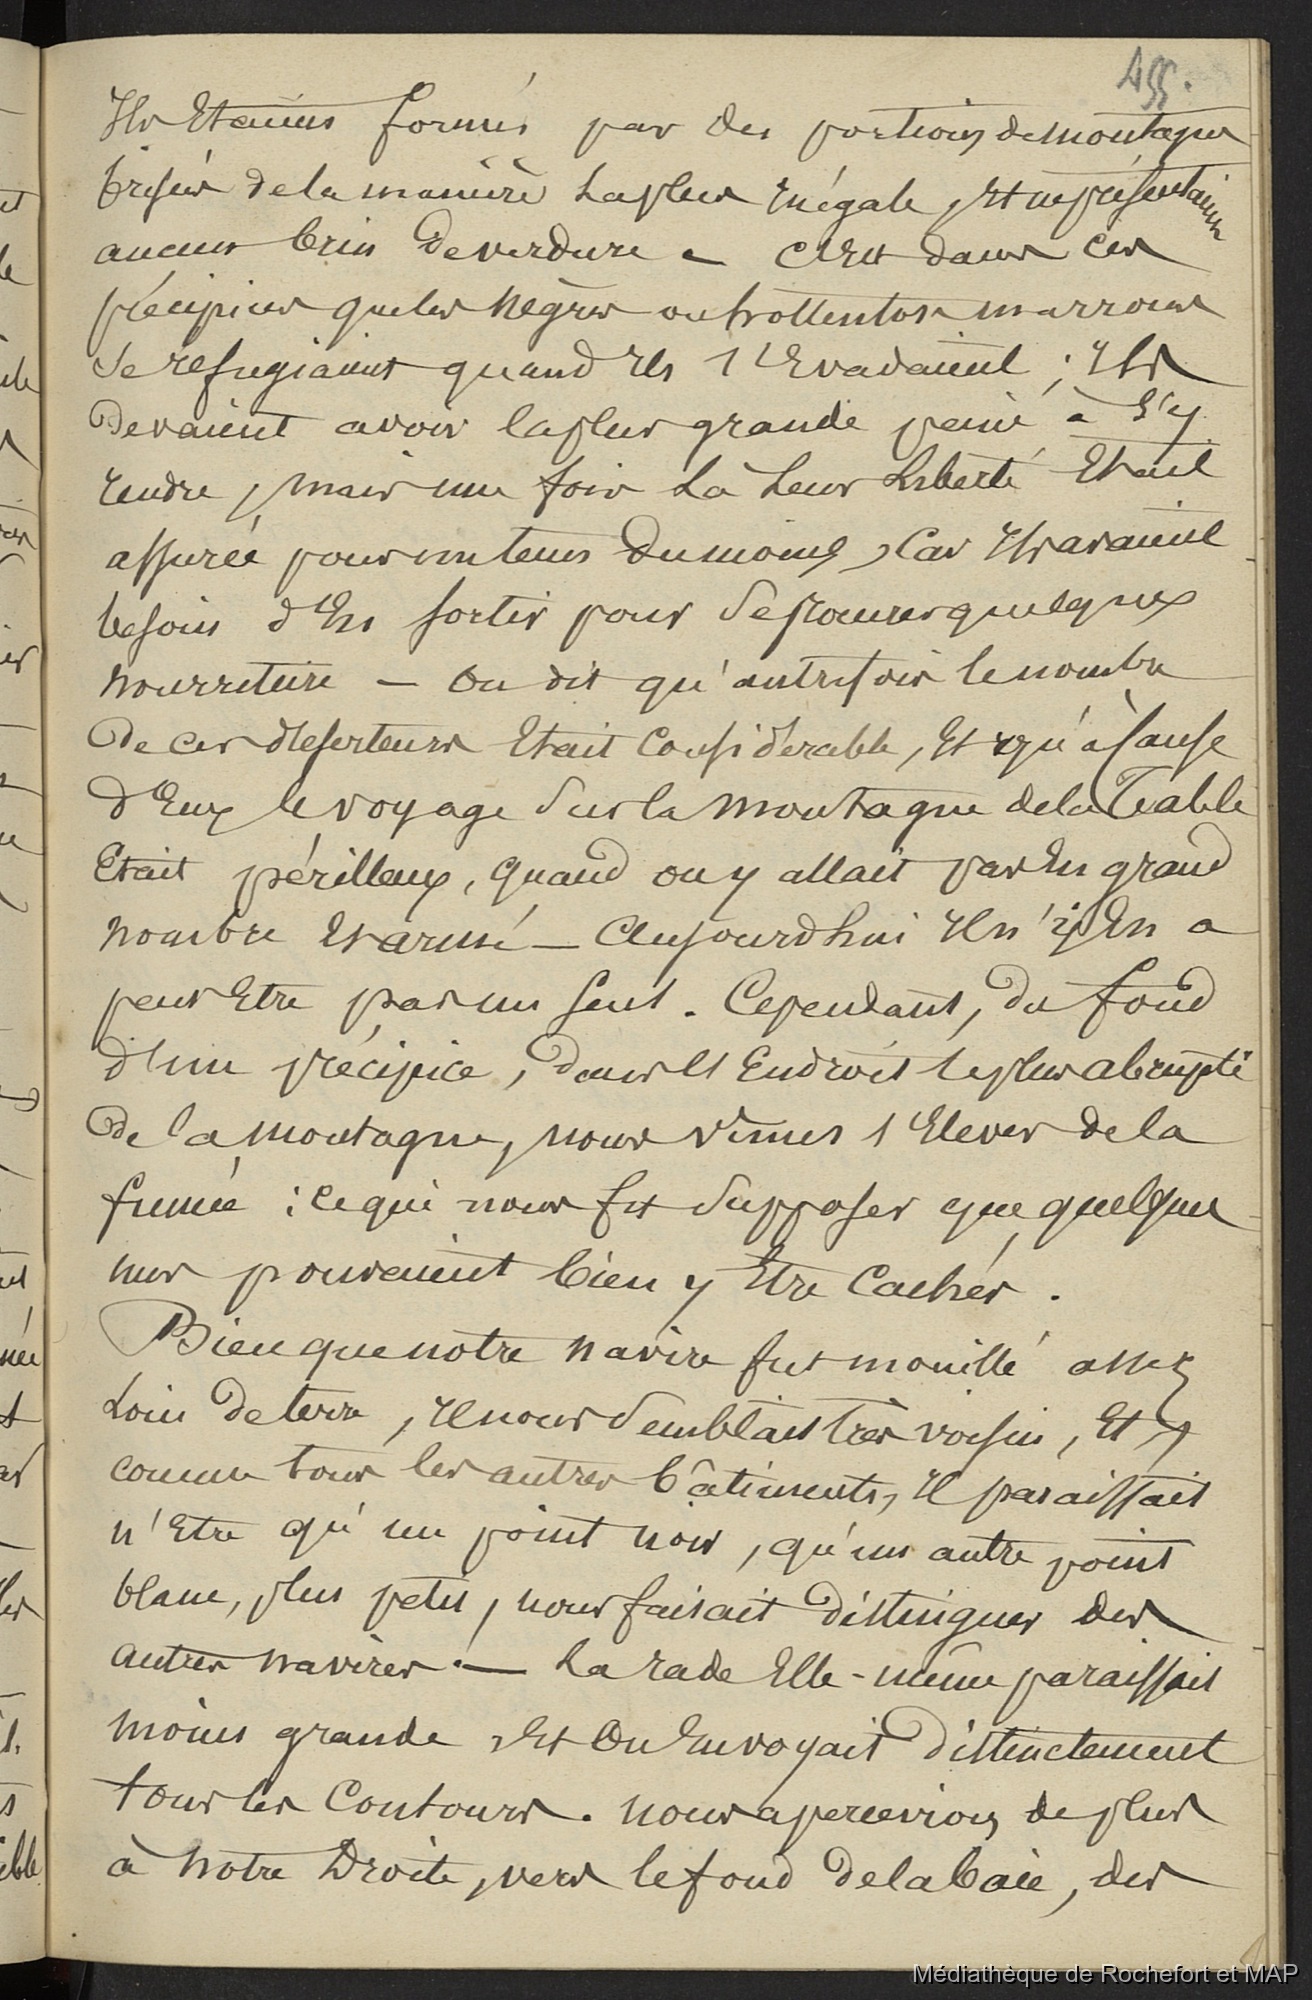 455.
Ils Etaient formés par des portions de montagne
brisées de la manière La plus Inégale, Et ne présentaient
aucun brin de verdure — C'Est dans ces
précipices que les Nègres ou hottentots marrons
Se refugiaient quand Ils s'Evadaient ; Ils
devaient avoir la plus grande peine à s'y
rendre, mais une fois Là Leur Liberté Etait
assurée pour un tems du moins, Car Ils avaient
besoin d'En sortir pour Se procurer quelques
Nourriture — On dit qu'autrefois le nombre
De ces déserteurs Etait Considérable, Et qu'à cause
d'Eux le voyage Sur la Montagne de la Table
Etait périlleux, quand on y allait pas En grand
nombre Et armé — Aujourdhui Il n'y En a
peut Etre pas un seul. Cependant, du fond
d'un précipice, dans l'Endroit le plus abrupte
De la montagne, nous vimes s'Elever de la
fumée ; ce qui nous fit Supposer que quelques
uns pouvaient bien y Etre Cachés.
Bien que notre Navire fut mouillé assez
Loin de terre, Il nous Semblait très voisin, Et
comme tous les autres bâtiments, Il paraissait
n'Etre qu'un point noir, qu'un autre point
blanc, plus petit, nous faisait distinguer des
autres Navires. — La rade Elle-même paraissait
moins grande, Et On En voyait distinctement
tous les Contours. Nous apercevions de plus
à Notre Droite, vers le fond de la baie, des
Médiathèque de Rochefort et MAP